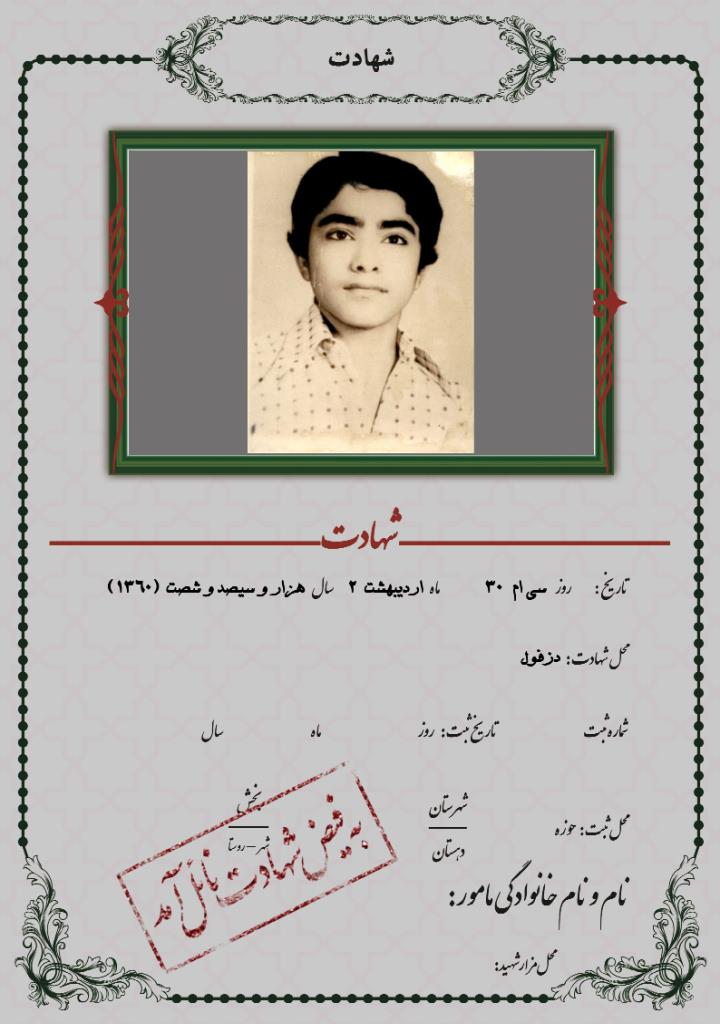 شهادت
شهادت
تاریخ: روز سی ام ۳۰ ماه اردیبهشت ۲ سال هزار و سیصد و شصت (۱۳۶۰)
محل شهادت: دزفول
شماره ثبت تاریخ ثبت: روز ماه سال
محل ثبت: حوزه شهرستان بخش
دهستان شهر – روستا
به فیض شهادت نائل آمد
نام و نام خانوادگی مامور:
محل مزار شهید: